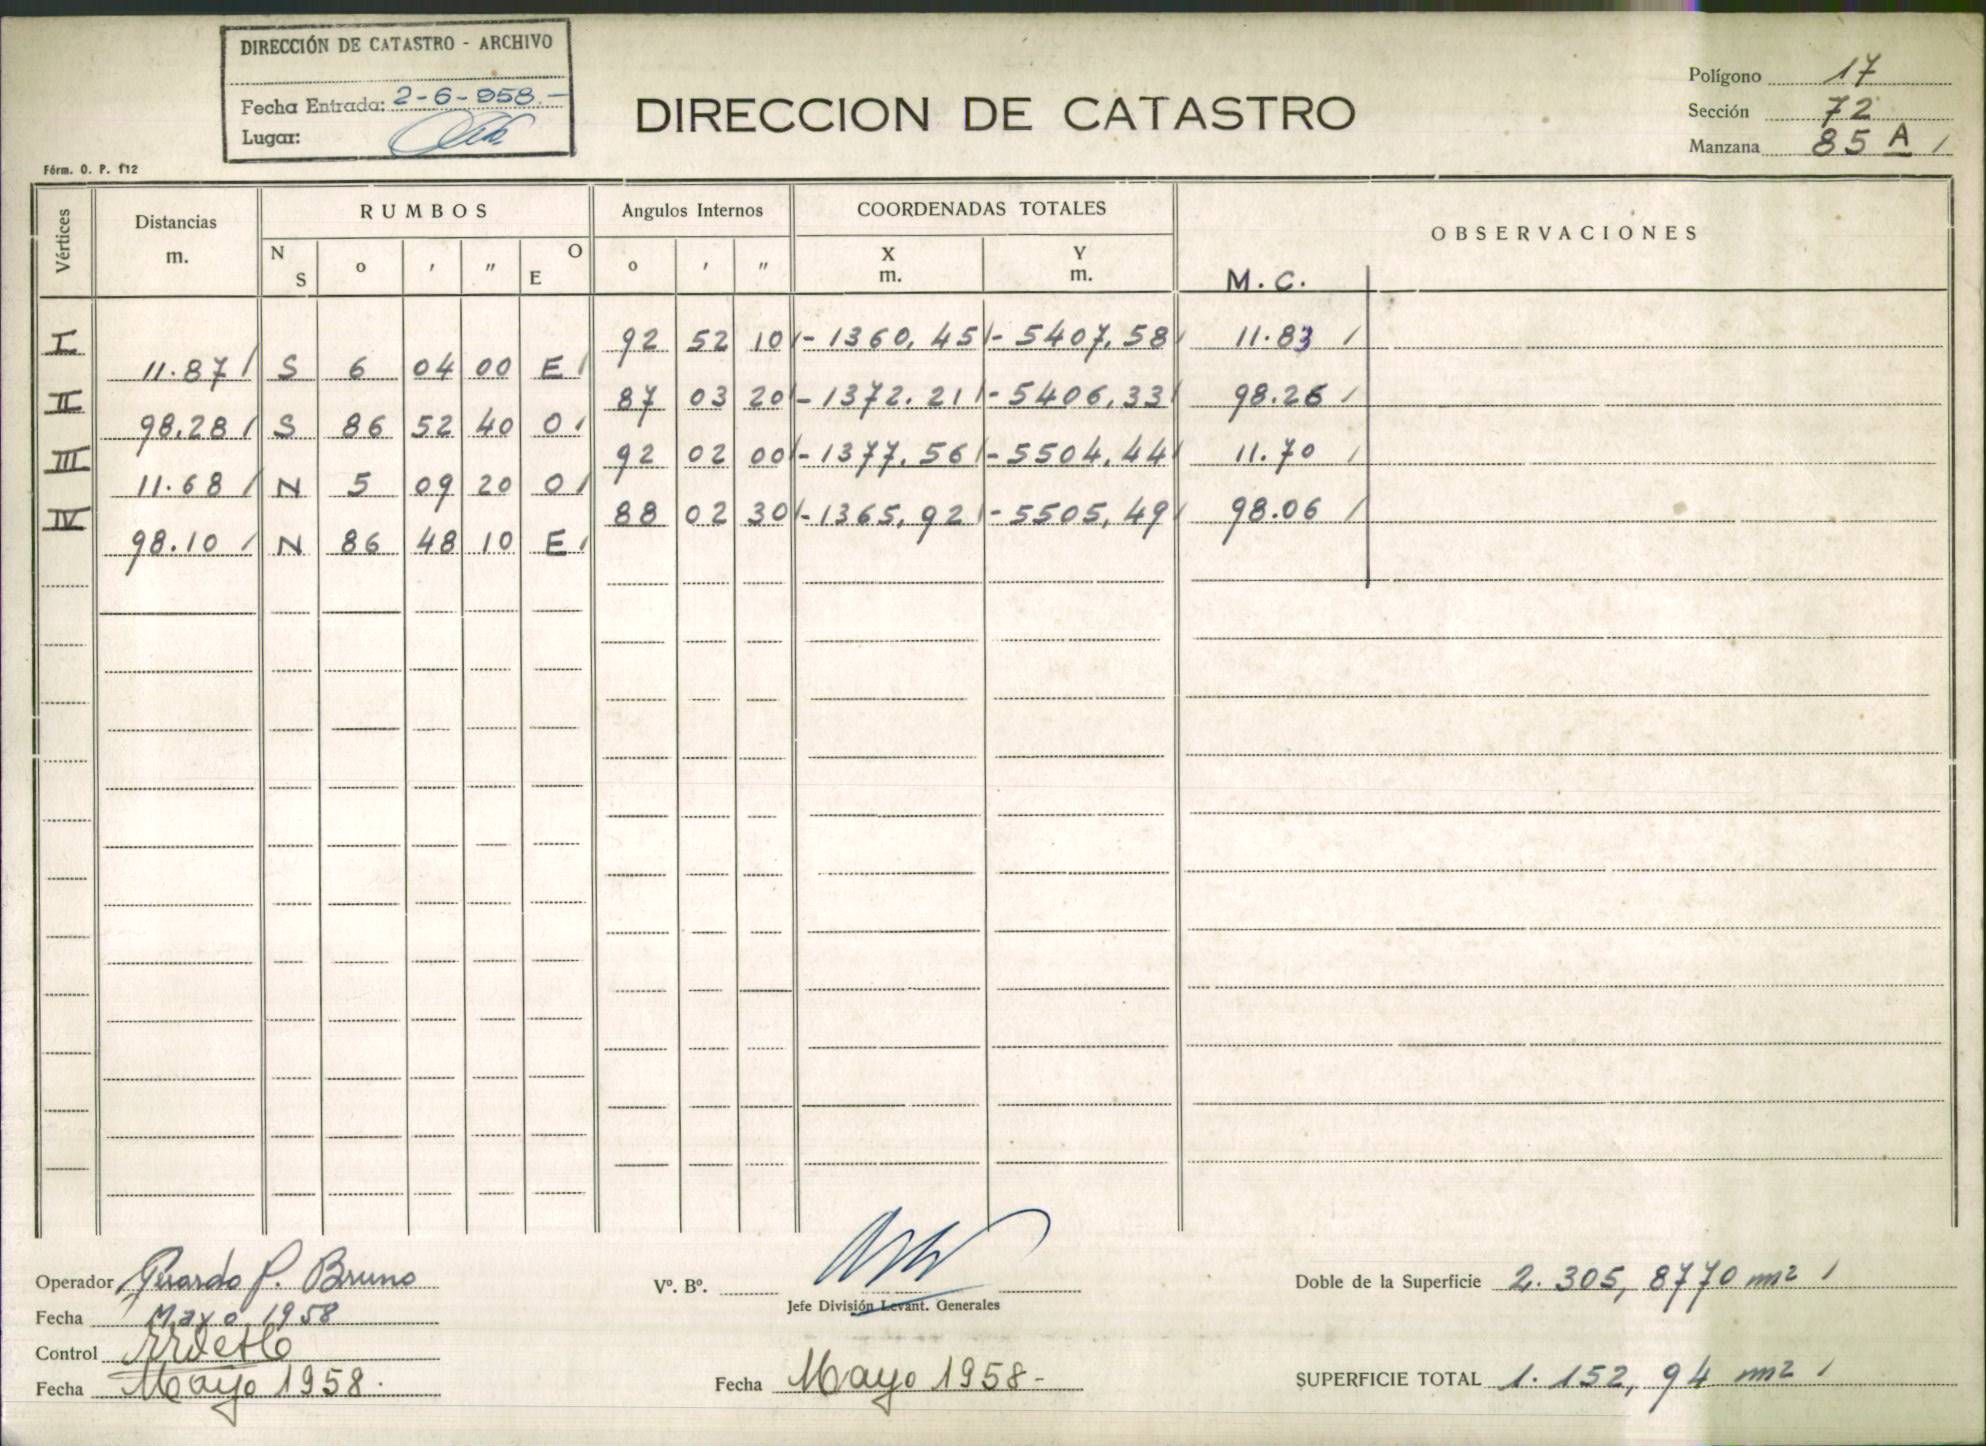 DIRECCIÓN DE CATASTRO - ARCHIVO
Fecha Entrada: 2-6-958.-
Lugar:
DIRECCION DE CATASTRO
Polígono 17
Sección 72
Manzana 85 A /
Fórm. O. P. f12
Vértices Distancias m. RUMBOS Angulos Internos COORDENADAS TOTALES OBSERVACIONES
N S o ' " O E o ' " X m. Y m. M. C.
I 92 52 10 - 1360,45 - 5407,58 11.83 /
11.87 / S 6 04 00 E /
II 87 03 20 - 1372.21 - 5406,33 98.26 /
98.28 / S 86 52 40 O /
III 92 02 00 - 1377,56 - 5504,44 11.70 /
11.68 / N 5 09 20 O /
IV 88 02 30 - 1365,92 - 5505,49 98.06 /
98.10 / N 86 48 10 E /
Operador Gerardo P. Bruno
Fecha Mayo 1958
Control
Fecha Mayo 1958.
Vº. Bº.
Jefe División Levant. Generales
Fecha Mayo 1958-
Doble de la Superficie 2.305,8770 m2 /
SUPERFICIE TOTAL 1.152,94 m2 /